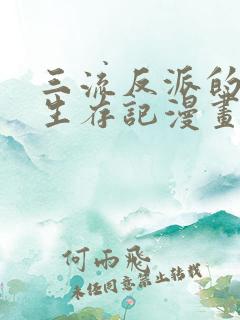 三流反派的
生存記漫畫
何雨飛
未经同意禁止转载